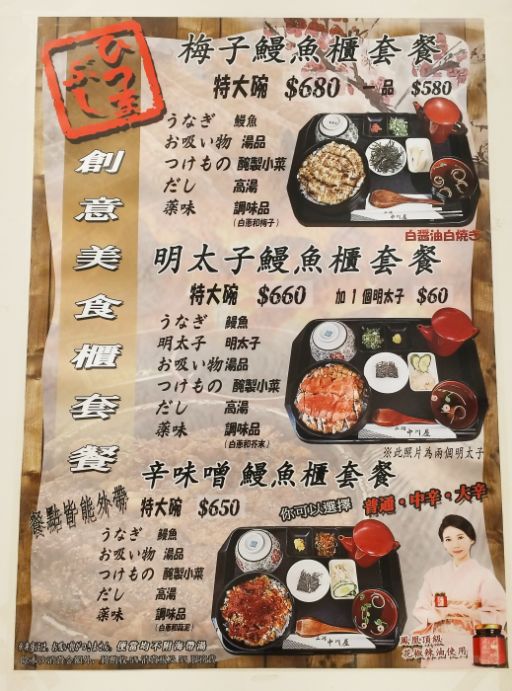 ひつまぶし
創意美食櫃套餐
梅子鰻魚櫃套餐
特大碗 $680 一品 $580
うなぎ 鰻魚
お吸い物 湯品
つけもの 醃製小菜
だし 高湯
薬味 調味品
(白蔥和梅子)
白醬油白燒き
明太子鰻魚櫃套餐
特大碗 $660 加1個明太子 $60
うなぎ 鰻魚
明太子 明太子
お吸い物 湯品
つけもの 醃製小菜
だし 高湯
薬味 調味品
(白蔥和芥末)
※此照片為兩個明太子
辛味噌鰻魚櫃套餐
餐點皆能外帶
特大碗 $650
你可以選擇 普通,中辛,大辛
うなぎ 鰻魚
お吸い物 湯品
つけもの 醃製小菜
だし 高湯
薬味 調味品
(白蔥和蒜泥)
鳳凰頂級
花椒辣油使用
お吸い物がつきません。便當均不附海帶湯